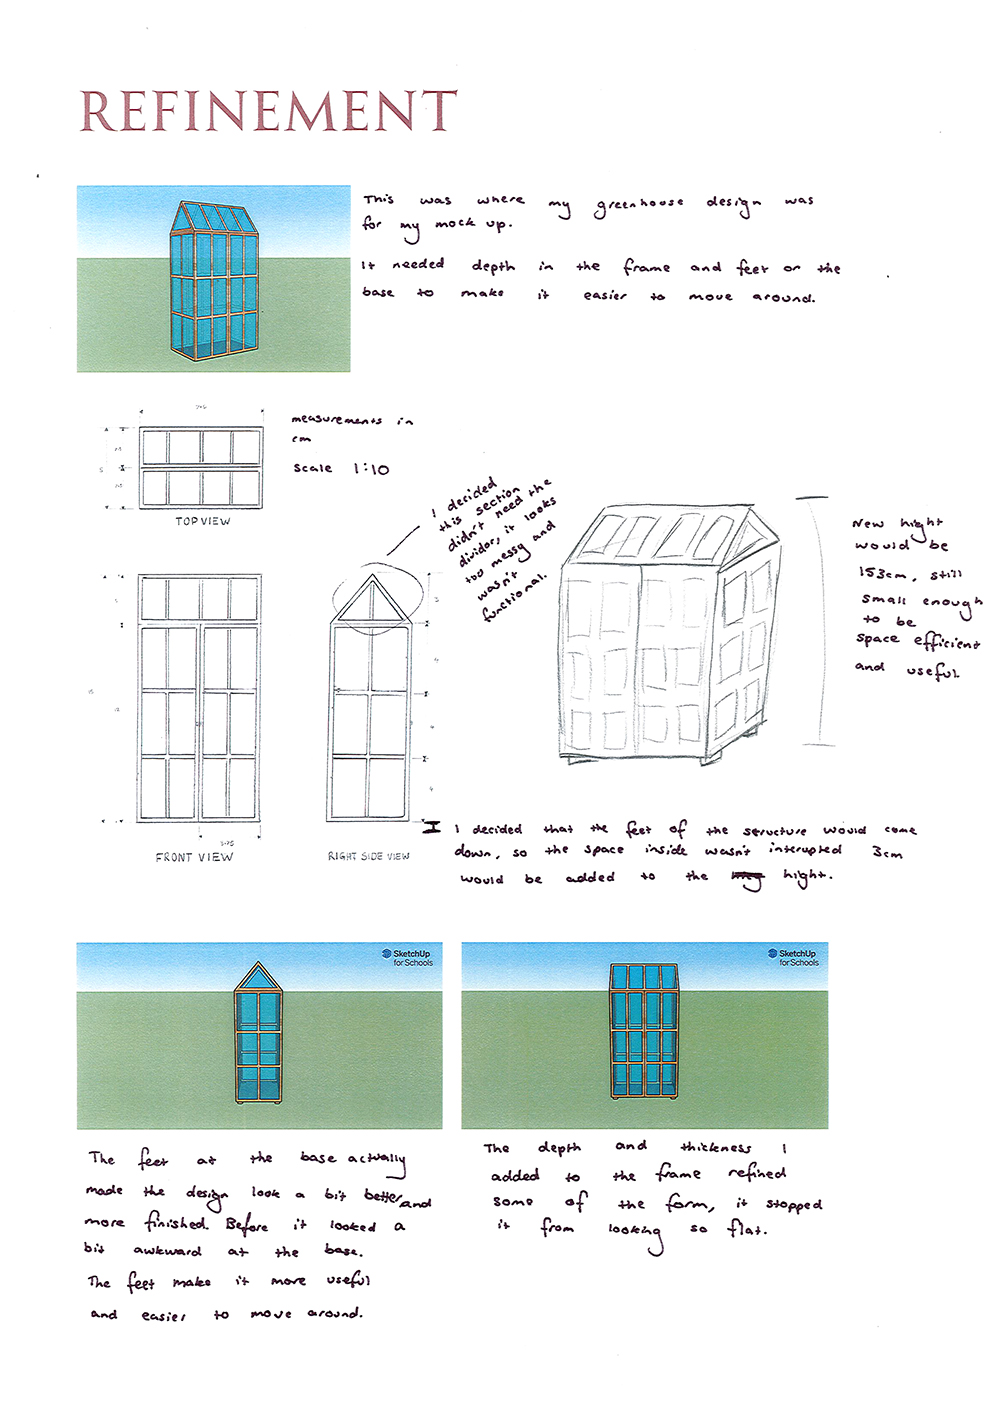 REFINEMENT
This was where my greenhouse design was
for my mock up.
It needed depth in the frame and feet or the
base to make it easier to move around.
measurements in
cm
Scale 1:10
TOP VIEW
I decided
this section
didn't need the
divider, it looks
too messy and
wasn't
functional.
New hight
would be
153cm, still
small enough
to be
space efficient
and useful.
FRONT VIEW
RIGHT SIDE VIEW
I decided that the feet of the structure would come
down, so the space inside wasn't interupted 3cm
would be added to the hight.
SketchUp
for Schools
SketchUp
for Schools
The feet at the base actually
made the design look a bit better and
more finished. Before it looked a
bit awkward at the base.
The feet make it more useful
and easier to move around.
The depth and thickness I
added to the frame refined
some of the form, it stopped
it from looking so flat.